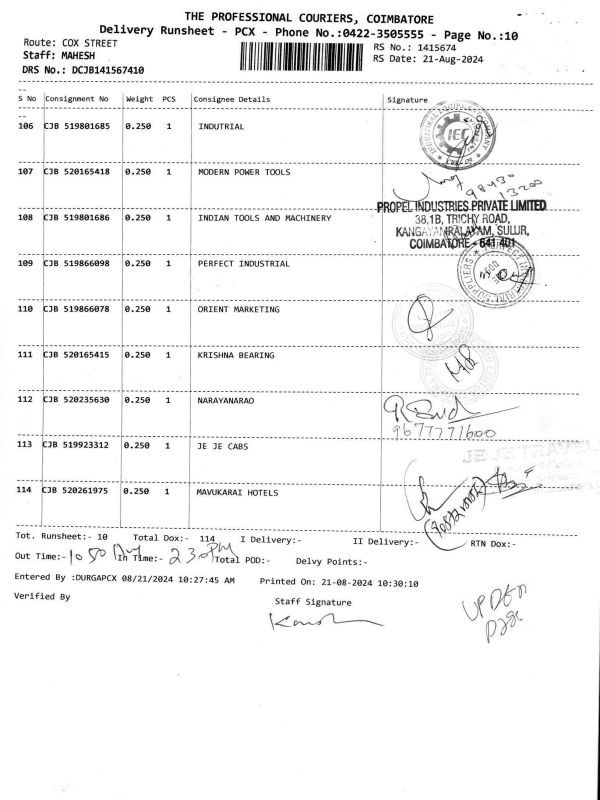 THE PROFESSIONAL COURIERS, COIMBATORE
Delivery Runsheet - PCX - Phone No.:0422-3505555 - Page No.:10
Route: COX STREET
RS No.: 1415674
Staff: MAHESH
RS Date: 21-Aug-2024
DRS No.: DCJB141567410
S No Consignment No Weight PCS Consignee Details Signature
106 CJB 519801685 0.250 1 INDUTRIAL
IEC
107 CJB 520165418 0.250 1 MODERN POWER TOOLS
98430
13200
108 CJB 519801686 0.250 1 INDIAN TOOLS AND MACHINERY
PROPEL INDUSTRIES PRIVATE LIMITED
38,1B, TRICHY ROAD,
KANGAYAMPALAYAM, SULUR,
COIMBATORE - 641 401
109 CJB 519866098 0.250 1 PERFECT INDUSTRIAL
110 CJB 519866078 0.250 1 ORIENT MARKETING
111 CJB 520165415 0.250 1 KRISHNA BEARING
112 CJB 520235630 0.250 1 NARAYANARAO
9677771600
113 CJB 519923312 0.250 1 JE JE CABS
JE JE TRAVELS
114 CJB 520261975 0.250 1 MAVUKARAI HOTELS
Tot. Runsheet:- 10 Total Dox:- 114 I Delivery:- II Delivery:- RTN Dox:-
Out Time:- 10 50 In Time:- 2 30 PM Total POD:- Delvy Points:-
Entered By :DURGAPCX 08/21/2024 10:27:45 AM Printed On: 21-08-2024 10:30:10
Verified By
Staff Signature